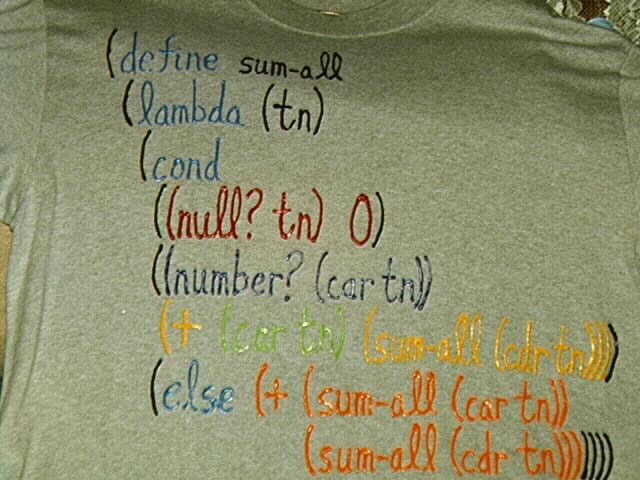 (define sum-all
(lambda (tn)
(cond
((null? tn) 0)
((number? (car tn))
(+ (car tn) (sum-all (cdr tn))))
(else (+ (sum-all (car tn))
(sum-all (cdr tn)))))))